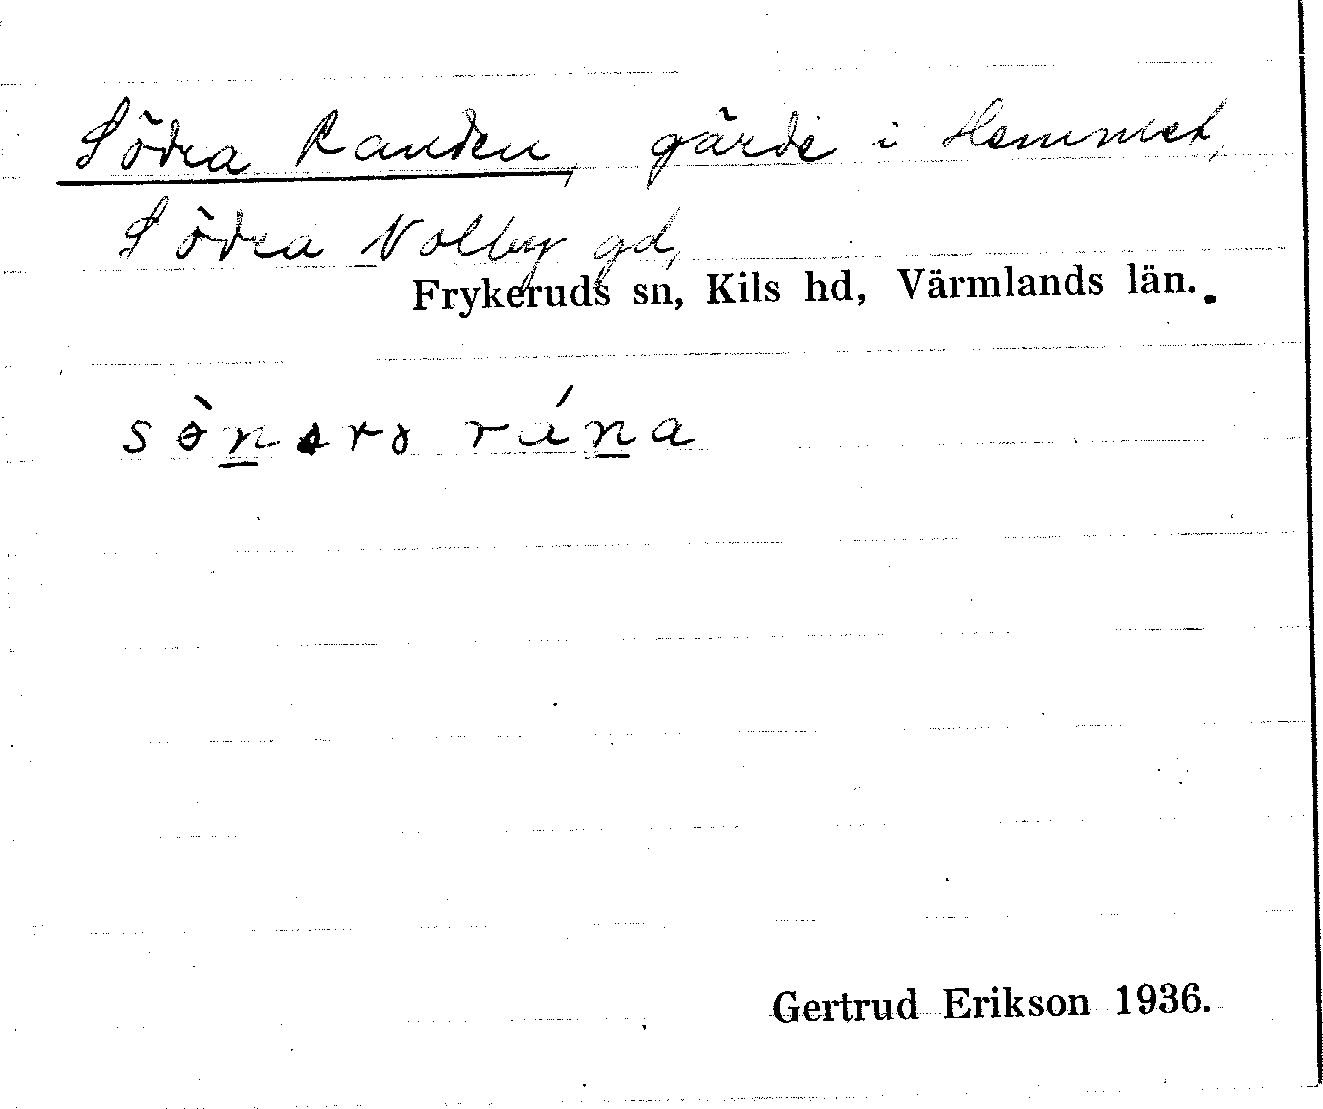 Södra Randen, gärde i Hemmet,
Södra Nolby gd,
Frykeruds sn, Kils hd, Värmlands län.
rána
Gertrud Erikson 1936.